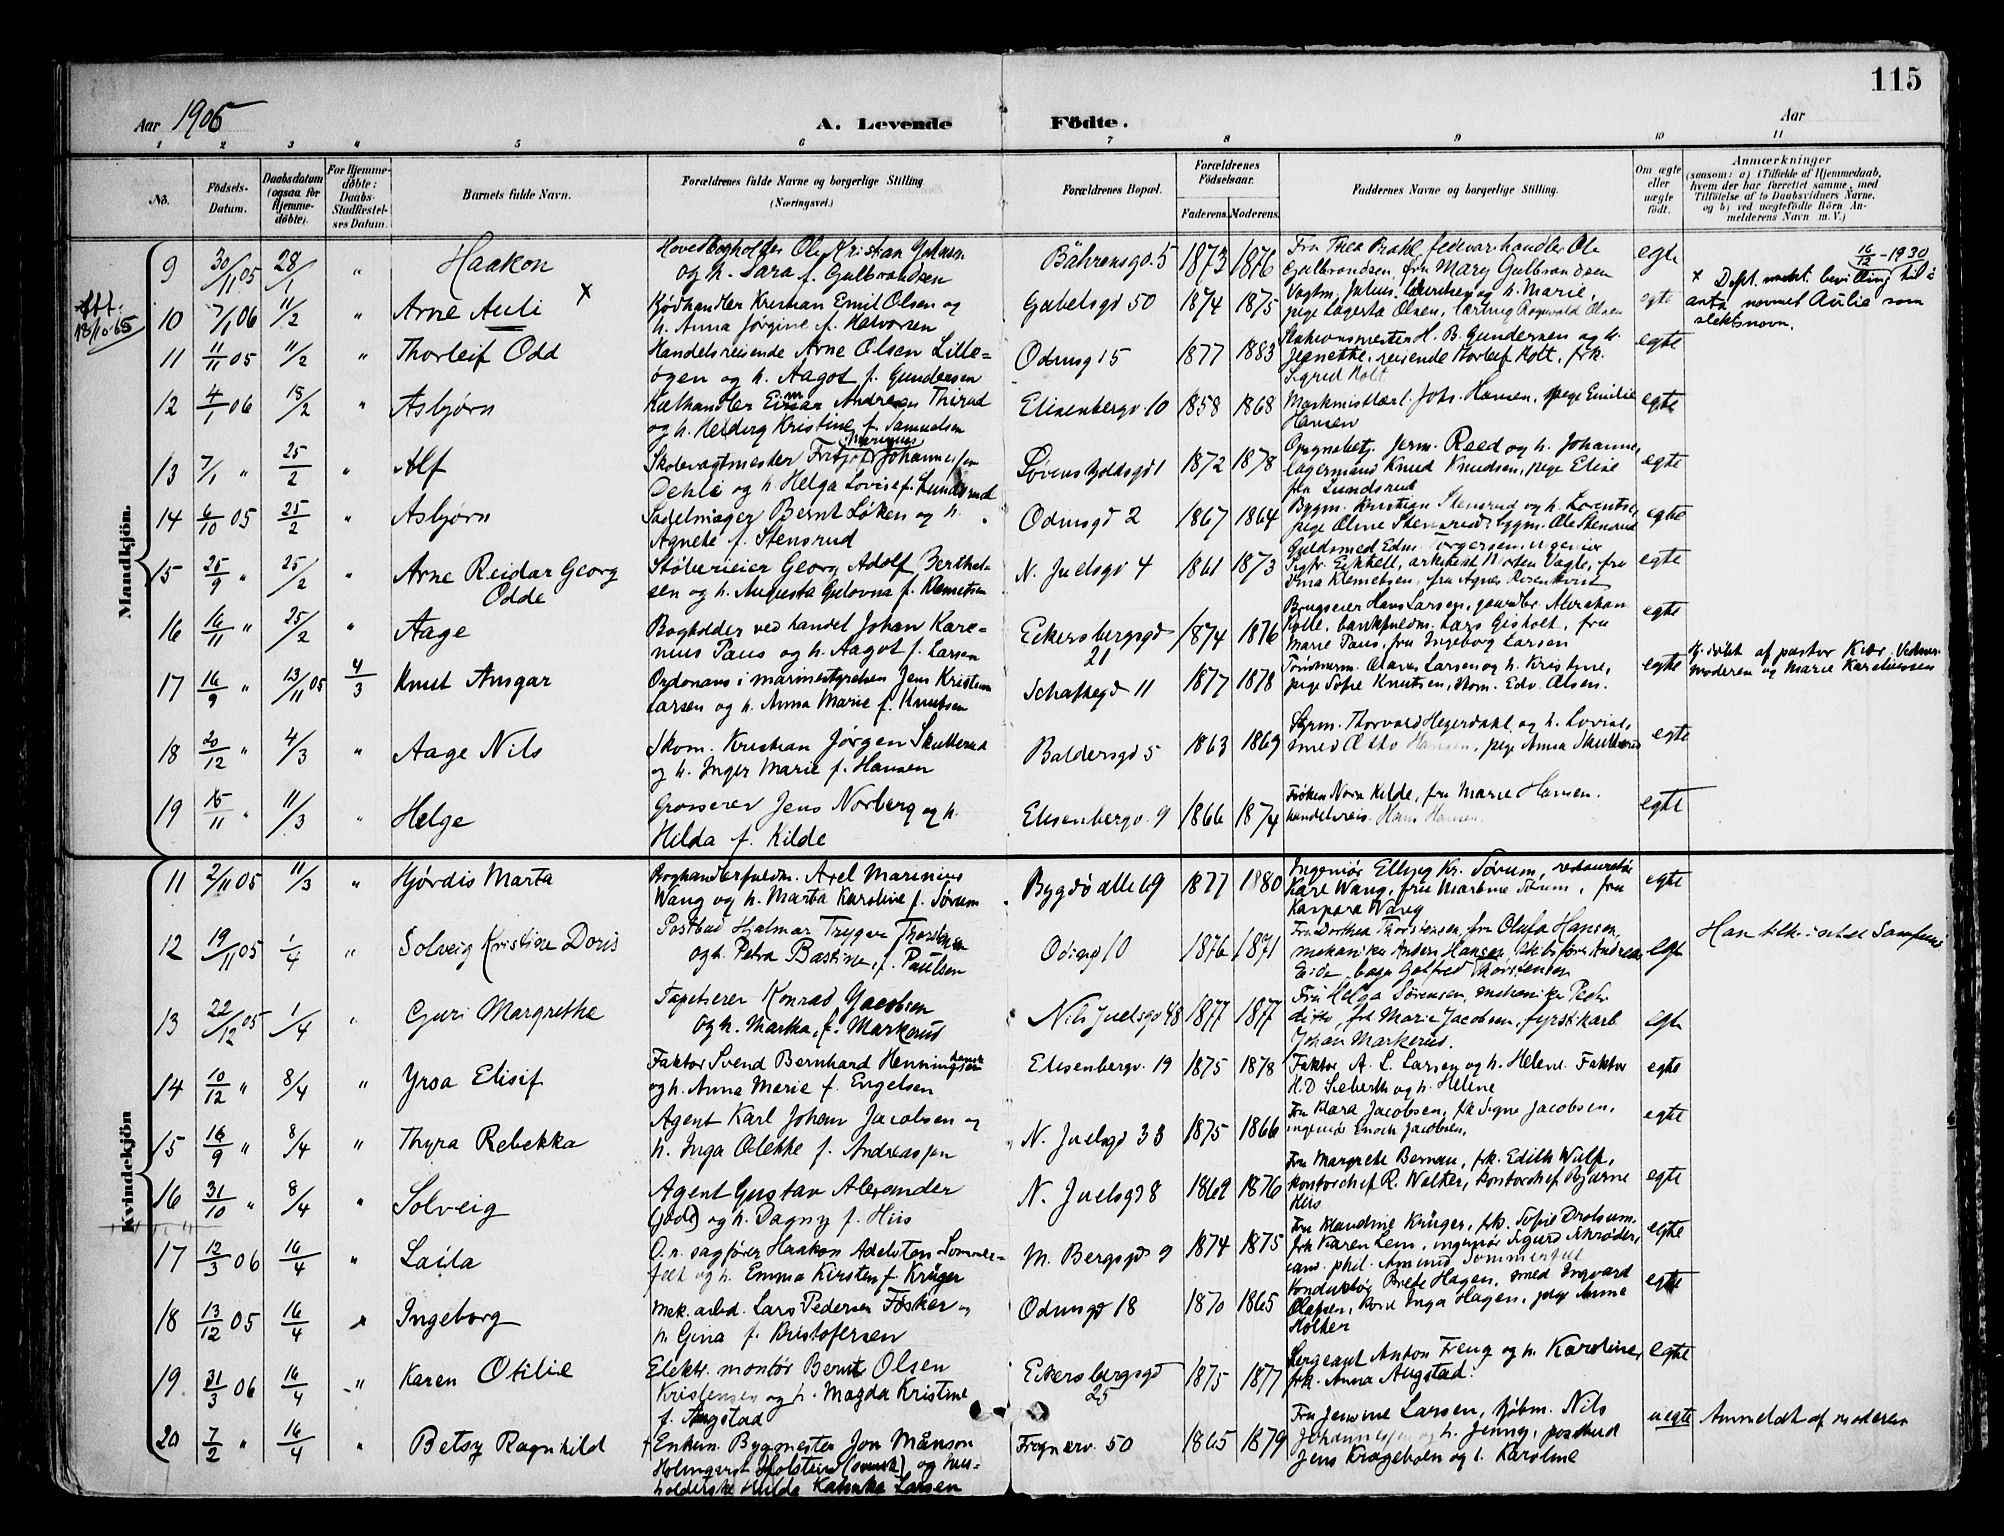 115
Aar 1906 A. Levende Födte. Aar
1 2 3 4 5 6 7 8 9 10 11
No.
Födsels-Datum.
Daabsdatum (ogsaa for Hjemmedöbte).
For Hjemmedöbte: Daabs-Stadfestelses Datum.
Barnets fulde Navn.
Forældrenes fulde Navne og borgerlige Stilling (Næringsvei.)
Forældrenes Bopæl.
Forældrenes Födselsaar.
Faderens. Moderens.
Faddernes Navne og borgerlige Stilling.
Om ægte eller uægte födt.
Anmærkninger
(saasom: a) i Tilfælde af Hjemmedaab, hvem der har forrettet samme, med Tilföielse af to Daabsvidners Navne, og b) ved uægtefödte Börn Anmelderens Navn m. V.)
Mandkjön.
9 30/11 05 28/1 " Haakon
Hovedbogholder Ole Kristian Johnsen
og h. Sara f. Gulbrandsen
Bährensgd. 5 1873 1876
Fru Thea Brath, fedevarehandler Ole
Gulbrandsen, fru Mary Gulbrandsen
egte
10 7/1 06 11/2 " Arne Auli x
Kjødhandler Kristian Emil Olsen og
h. Anna Jørgine f. Halvorsen
Gabelsgd 50 1874 1875
Vagtm. Julius Lauritsen og h. Marie,
pige Lagerta Olsen, Ragnvald Olsen
egte
16/12 - 1930
x Dept. medd. bevilling til å
anta navnet Aulie som
slektsnavn.
11 11/11 05 11/2 " Thorleif Odd
Handelsreisende Arne Olsen Lille=
ögen og h. Aagot f. Gundersen
Odinsgd 5 1877 1883
Stationsmester H. B. Gundersen og h.
Jeanette, reisende Thorleif Holt, frk.
Sigrid Holt
egte
12 4/1 06 18/2 " Asbjørn
Kulhandler Einar Andreas Thirud
og h. Hedvig Kristine f. Samuelsen
Elisenbergv. 10 1858 1868
Joh. Hansen, pige Emilie
Hansen
egte
13 7/1 " 25/2 " Alf
Skolevagtmester Fritjof Marinius Johannessen
Dehli og h. Helga Lovise f. Lundsrud
Løvenskjoldsgd 1 1872 1878
Opsynsbetj. Jerm. Reed og h. Johanne,
lagermand Knud Knudsen, pige Elise
Lundsrud
egte
14 6/10 05 25/2 " Asbjørn
Sadelmager Bernt Løken og h.
Agnete f. Stensrud
Odinsgd 2 1867 1864
Bygm. Kristian Stensrud og h. Lorentse,
pige Oline Stensrud, bygm. Ole Stensrud
egte
15 25/9 " 25/2 " Arne Reidar Georg
Odde
Støberieier Georg Adolf Berthel-
sen og h. Augusta Gulovna f. Klemetsen
N. Juelsgd 4 1861 1873
Guldsmed Edw. Torgersen, ingeniør
Sigfr. Eckhell, arkitekt Morten Vagle, fru
Dina Klemetsen, fru Agnes Rosenkvist
egte
16 16/11 " 25/2 " Aage
Bogholder ved handel Johan Kare=
nius Paus og h. Aagot f. Larsen
Eckersbergsgd
21 1874 1876
Brugseier Hans Larsen, gaardbr. Abraham
Rolle, bankfuldm. Lars Gisholt, fru
Marie Paus, fru Ingeborg Larsen
egte
17 16/9 " 13/11 05 4/3 Knut Ansgar
Ordonans i marinestyrelsen Jens Kristian
Larsen og h. Anna Marie f. Knutsen
Schaftegd 11 1877 1878
Tømmerm. Olaves Larsen og h. Kristine,
pige Sofie Knutsen, Edv. Olsen.
egte
Hj.døbt af pastor Kiær. Vidner
moderen og Marie Karelinessen
18 20/12 " 4/3 " Aage Nils
Skom. Kristian Jørgen Skutterud
og h. Inger Marie f. Hansen
Baldersgd 5 1863 1869
Styrm. Thorvald Hegerdahl og h. Lovise,
smed Otto Hansen, pige Anna Skutterud
egte
19 15/11 " 11/3 " Helge
Grosserer Jens Norberg og h.
Hilda f. Kilde
Elisenbergv. 9 1866 1874
Frøken Nora Kilde, fru Marie Hansen.
handelsreis. Hans Hansen.
egte
Kvindekjön
11 2/11 05 11/3 " Hjørdis Marta
Boghandlerfuldm. Axel Marinius
Wang og h. Marta Karoline f. Sørum
Bygdø alle 69 1877 1880
Ingeniør Elling Kr. Sørum, restauratør
Karl Wang, fru Martine Sørum, fru
Kaspara Wang
egte
12 19/11 05 1/4 " Solveig Kristine Doris
Postbud Hjalmar Trygve Thorstensen
og h. Petra Bastine, f. Paulsen
Odinsg 10 1876 1871
Fru Dorthea Thorstensen, fru Olufa Hansen,
mekaniker Anders Hansen, skibsfører Andreas
Eide, Golfred Thorstensen
egte
13 22/12 05 1/4 " Guri Margrethe
Tapetserer Konrad Jacobsen
og h. Martha, f. Markerud
Nils Juelsgd 48 1877 1877
Fru Helga Sørensen, mekaniker Peder
ditto, frk Marie Jacobsen, fyrstikarb.
Johan Markerud.
egte
14 10/12 " 8/4 " Yrsa Elisif
Faktor Svend Bernhard Henningsen
og h. Anna Marie f. Engelsen
Elisenbergv. 19 1875 1878
Faktor A. L. Larsen og h. Helene. Faktor
H. D. Sieberth og h. Helene
egte
15 16/9 " 8/4 " Thyra Rebekka
Agent Karl Johan Jacobsen og
h. Inga Olekke f. Andreassen
N. Juelsgd 33 1875 1866
Fru Klara Jacobsen, frk Signe Jacobsen,
ingeniør Enoch Jacobsen.
egte
16 31/10 " 8/4 " Solveig
Agent Gustav Alexander
(jøde) og h. Dagny f. Hiis
N. Juelsgd 8 1869 1876
Fru Margrete Bernau, frk. Edith Wulf,
kontorchef R. Welker, kontorchef Bjarne
Hiis
egte
17 12/3 06 16/4 " Laila
O.r. sagfører Haakon Adelsten Sommer=
felt og h. Emma Kirsten f. Krüger
M. Bergsgd 9 1874 1875
Fru Klaudine Krüger, frk. Sofie Drolsum,
frk Karen Lem, ingeniør Sigurd Schrøder,
cand. phil. Amund Sommerfelt
egte
18 13/12 05 16/4 " Ingeborg
Mek. arbd. Lars Pedersen Fosker og
h. Gina f. Kristofersen
Odinsgd 18 1870 1865
Konduktør Hagen, smed Ingvard
Olassen, Inga Hagen, pige Anna
Holter
egte
19 31/3 06 16/4 " Karen Otilie
Elektr. montør Bernt Olsen
Kristensen og h. Magda Kristine
f. Augstad
Eckersbergsgd
25 1875 1877
Sergeant Anton Freng og h. Karoline,
frk. Anna Augstad.
egte
20 7/2 " 16/4 " Betsy Ragnhild
Enkem. Bygmester Jon Månson
Holmquist Holstein (svensk) og hus-
holderske Hilda Kathinka Larsen
Frognerv. 50 1865 1879
Fru Jensine Larsen, kjøbm. Nils
Johannessen og h. Jenny, postbud
Jens Kragebøen og h. Karoline
uegte
Anmeldt af moderen